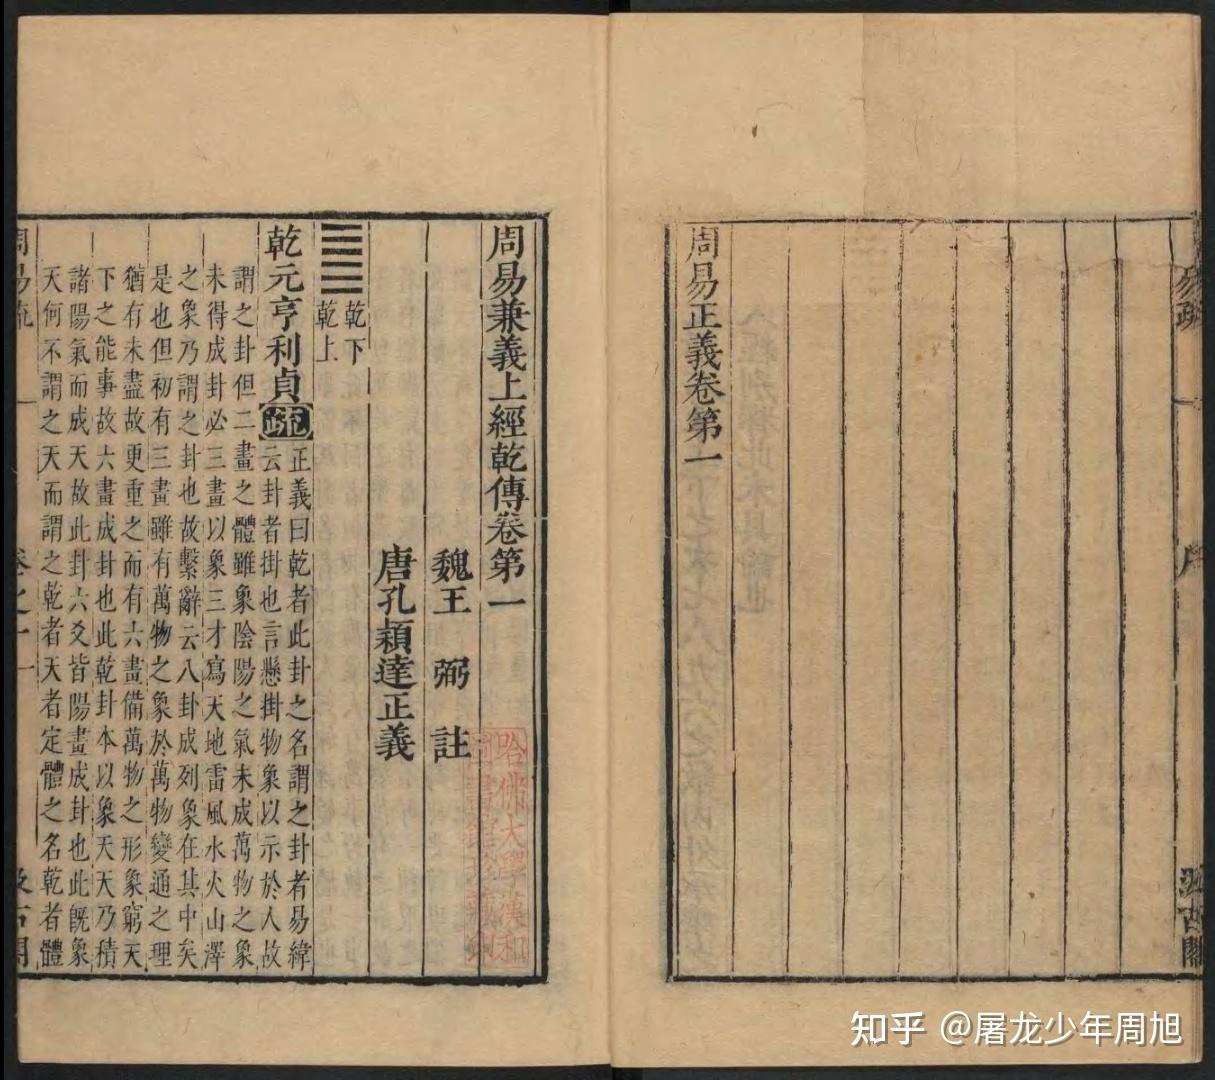 易疏 一 序 汲古閣
周易正義卷第一
周易兼義上經乾傳卷第一
魏王 弼 註
唐孔穎達正義
乾下
乾上
乾元亨利貞疏
正義曰乾者此卦之名謂之卦者易緯
云卦者掛也言懸掛物象以示於人故
謂之卦但二畫之體雖象陰陽之氣未成萬物之象
未得成卦必三畫以象三才寫天地雷風水火山澤
之象乃謂之卦也故繫辭云八卦成列象在其中矣
是也但初有三畫雖有萬物之象於萬物變通之理
猶有未盡故更重之而有六畫備萬物之形象窮天
下之能事故六畫成卦也此乾卦本以象天天乃積
諸陽氣而成天故此卦六爻皆陽畫成卦也此既象
天何不謂之天而謂之乾者天者定體之名乾者體
周易疏 卷之一 一 汲古閣
哈佛大學漢和
圖書館珍藏印
知乎 @屠龙少年周旭